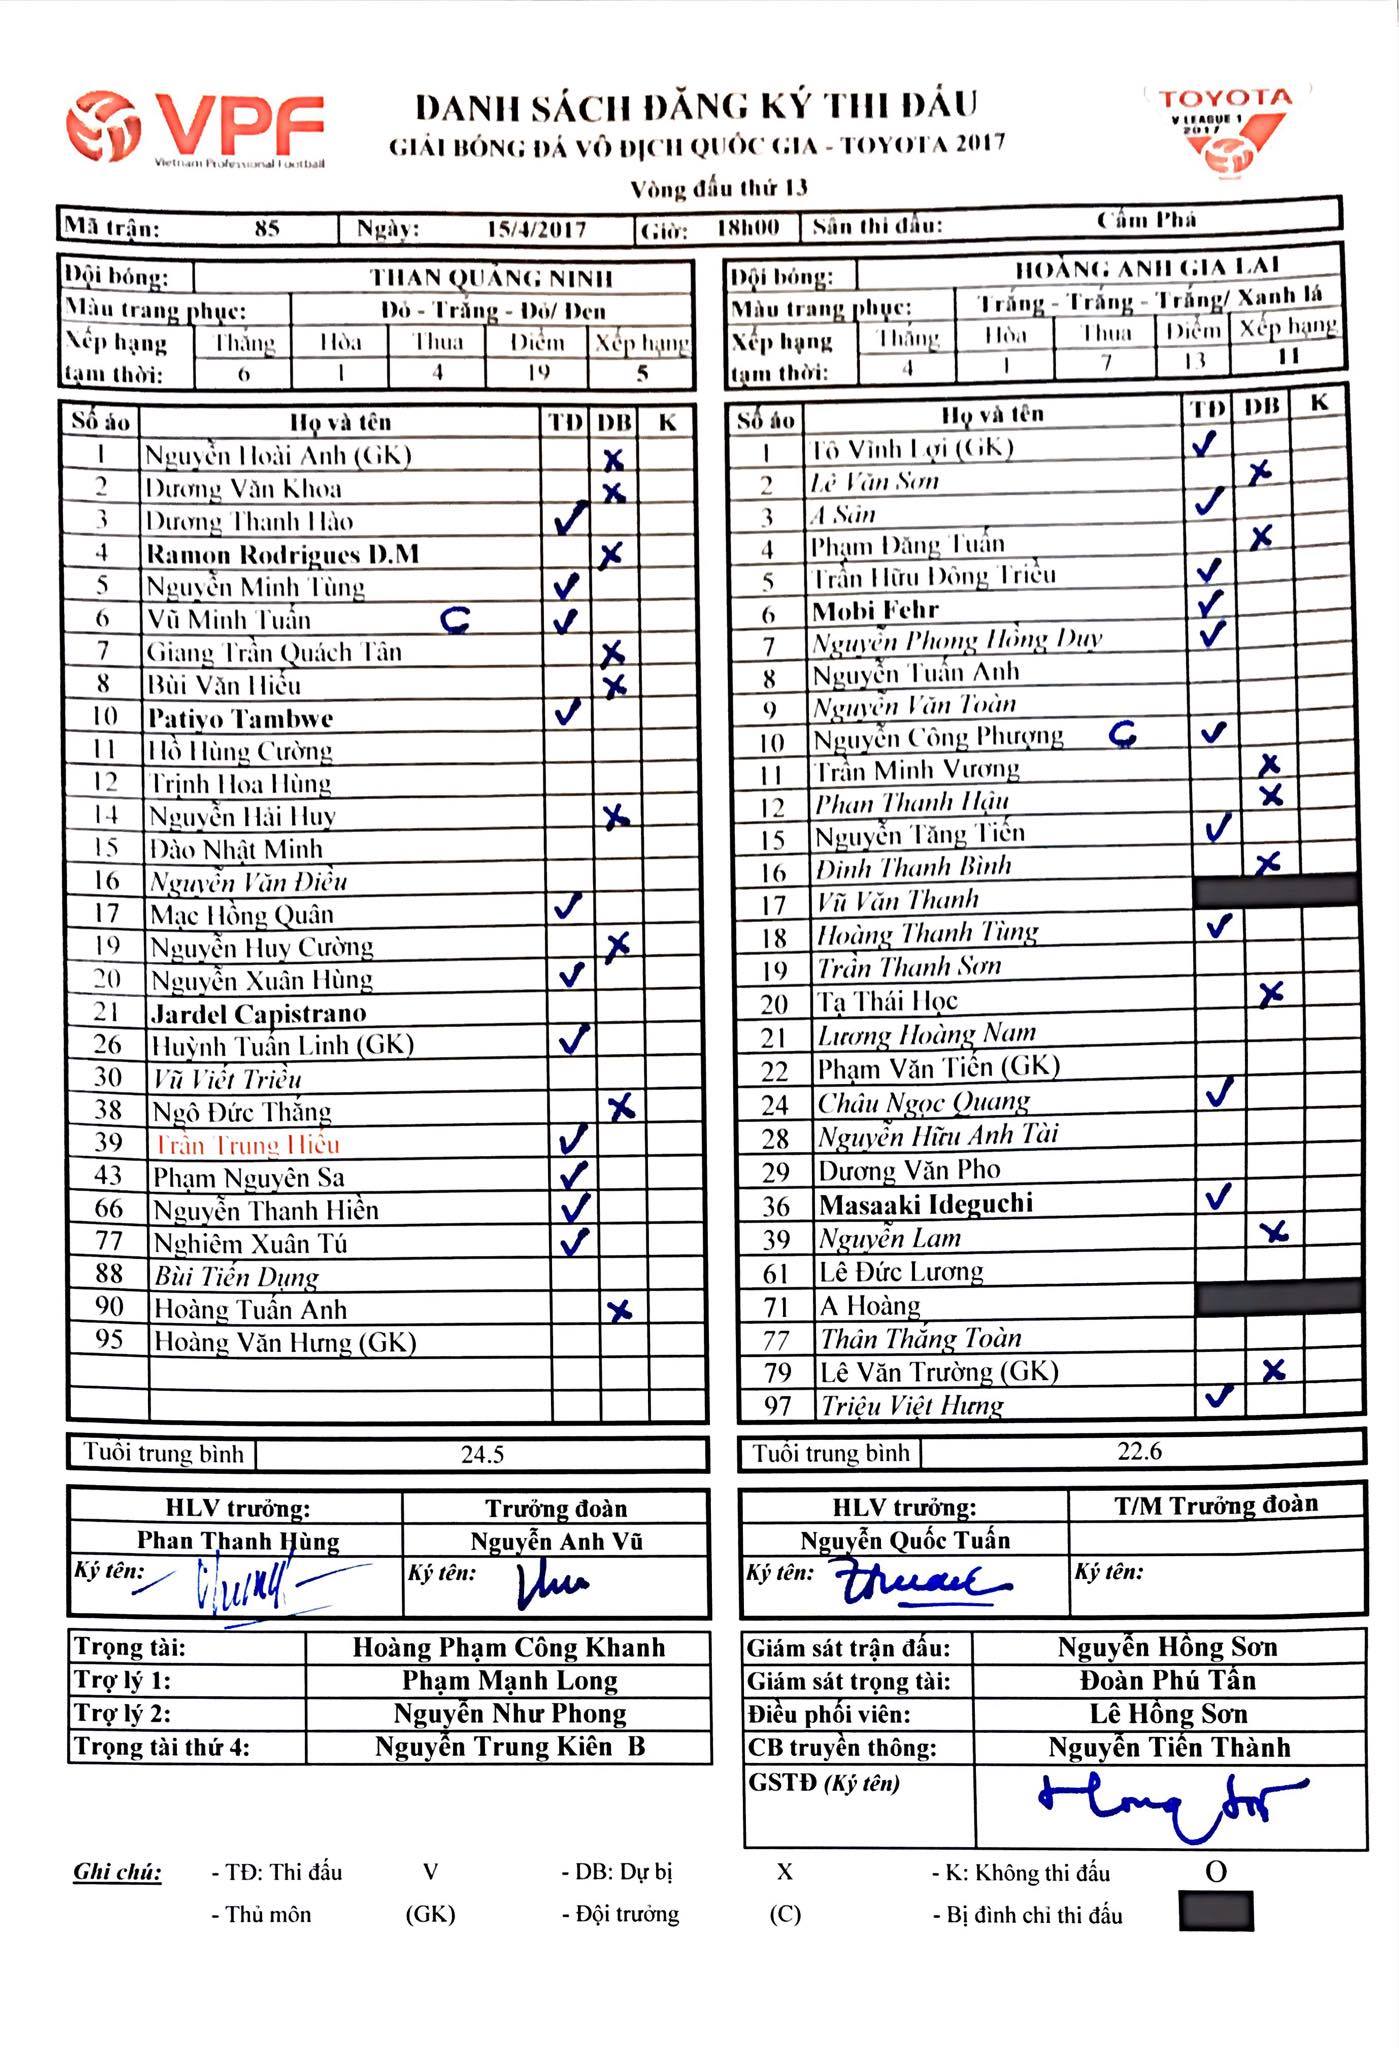 VPF
Vietnam Professional Football
DANH SÁCH ĐĂNG KÝ THI ĐẤU
GIẢI BÓNG ĐÁ VÔ ĐỊCH QUỐC GIA - TOYOTA 2017
Vòng đấu thứ 13
TOYOTA
V LEAGUE 1
2017
Mã trận: 85 Ngày: 15/4/2017 Giờ: 18h00 Sân thi đấu: Cẩm Phả
Đội bóng: THAN QUẢNG NINH
Màu trang phục: Đỏ - Trắng - Đỏ/ Đen
Xếp hạng Thắng Hòa Thua Điểm Xếp hạng
tạm thời: 6 1 4 19 5
Số áo Họ và tên TĐ DB K
1 Nguyễn Hoài Anh (GK) X
2 Dương Văn Khoa X
3 Dương Thanh Hào V
4 Ramon Rodrigues D.M X
5 Nguyễn Minh Tùng V
6 Vũ Minh Tuấn C V
7 Giang Trần Quách Tân X
8 Bùi Văn Hiếu X
10 Patiyo Tambwe V
11 Hồ Hùng Cường
12 Trịnh Hoa Hùng
14 Nguyễn Hải Huy X
15 Đào Nhật Minh
16 Nguyễn Văn Điều
17 Mạc Hồng Quân V
19 Nguyễn Huy Cường X
20 Nguyễn Xuân Hùng V
21 Jardel Capistrano
26 Huỳnh Tuấn Linh (GK) V
30 Vũ Viết Triều
38 Ngô Đức Thắng X
39 Trần Trung Hiếu V
43 Phạm Nguyên Sa V
66 Nguyễn Thanh Hiền V
77 Nghiêm Xuân Tú V
88 Bùi Tiến Dụng
90 Hoàng Tuấn Anh X
95 Hoàng Văn Hưng (GK)
Tuổi trung bình 24.5
HLV trưởng: Trưởng đoàn
Phan Thanh Hùng Nguyễn Anh Vũ
Ký tên: Ký tên:
Trọng tài: Hoàng Phạm Công Khanh
Trợ lý 1: Phạm Mạnh Long
Trợ lý 2: Nguyễn Như Phong
Trọng tài thứ 4: Nguyễn Trung Kiên B
Đội bóng: HOÀNG ANH GIA LAI
Màu trang phục: Trắng - Trắng - Trắng/ Xanh lá
Xếp hạng Thắng Hòa Thua Điểm Xếp hạng
tạm thời: 4 1 7 13 11
Số áo Họ và tên TĐ DB K
1 Tô Vĩnh Lợi (GK) V
2 Lê Văn Sơn X
3 A Sân V
4 Phạm Đăng Tuấn X
5 Trần Hữu Đông Triều V
6 Mobi Fehr V
7 Nguyễn Phong Hồng Duy V
8 Nguyễn Tuấn Anh
9 Nguyễn Văn Toàn
10 Nguyễn Công Phượng C V
11 Trần Minh Vương X
12 Phan Thanh Hậu X
15 Nguyễn Tăng Tiến V
16 Đinh Thanh Bình X
17 Vũ Văn Thanh
18 Hoàng Thanh Tùng V
19 Trần Thanh Sơn
20 Tạ Thái Học X
21 Lương Hoàng Nam
22 Phạm Văn Tiến (GK)
24 Châu Ngọc Quang V
28 Nguyễn Hữu Anh Tài
29 Dương Văn Pho
36 Masaaki Ideguchi V
39 Nguyễn Lam X
61 Lê Đức Lương
71 A Hoàng
77 Thân Thắng Toàn
79 Lê Văn Trường (GK) X
97 Triệu Việt Hưng V
Tuổi trung bình 22.6
HLV trưởng: T/M Trưởng đoàn
Nguyễn Quốc Tuấn
Ký tên: Ký tên:
Giám sát trận đấu: Nguyễn Hồng Sơn
Giám sát trọng tài: Đoàn Phú Tấn
Điều phối viên: Lê Hồng Sơn
CB truyền thông: Nguyễn Tiến Thành
GSTĐ (Ký tên)
Ghi chú: - TĐ: Thi đấu V - DB: Dự bị X - K: Không thi đấu O
- Thủ môn (GK) - Đội trưởng (C) - Bị đình chỉ thi đấu